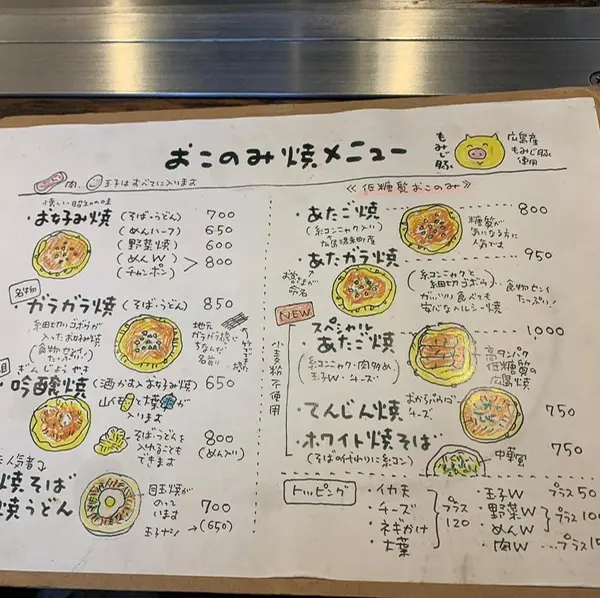 おこのみ焼メニュー
もみじ豚
広島産
もみじ豚
使用
肉、玉子はすべてに入ります
《低糖質おこのみ》
お好み焼 (そば・うどん) 700
(めんハーフ) 650
(野菜焼) 600
(めんW)
(チャンポン) > 800
名物
・ガラガラ焼 (そば・うどん) 850
細切りゴボウが
入ったお好み焼
(食物センイたっぷり)
地元
ガラガラ橋に
ちなんだ
名前
ぎんじょうやき
吟醸焼 (酒かす入お好み焼) 650
山イモと大葉が
入ります
そばうどんを
入れることも
できます
800
(めん入り)
人気者
焼そば
焼うどん
目玉焼が
のって
います
700
玉子ナシ→(650)
・あたご焼 800
(糸コンニャク入り)
糖質が
気になる方に
人気です
・あたガラ焼 950
お客さまが
命名
(糸コンニャクと
細切りゴボウ)
ガッツリ食べても
安心なヘルシー焼
食物センイ
たっぷり!
NEW
小麦粉不使用
スペシャル
・あたご焼 1000
(糸コンニャク・肉多め
玉子W・チーズ)
高タンパク
低糖質の
広島焼
・てんじん焼 750
おからパウダー
チーズ
・ホワイト焼そば 750
(そばの代わりに糸コン)
中華風
トッピング
・イカ天
・チーズ
・ネギかけ
・大葉
プラス
120
・玉子W プラス50
・野菜W
・めんW
プラス100
・肉W …プラス